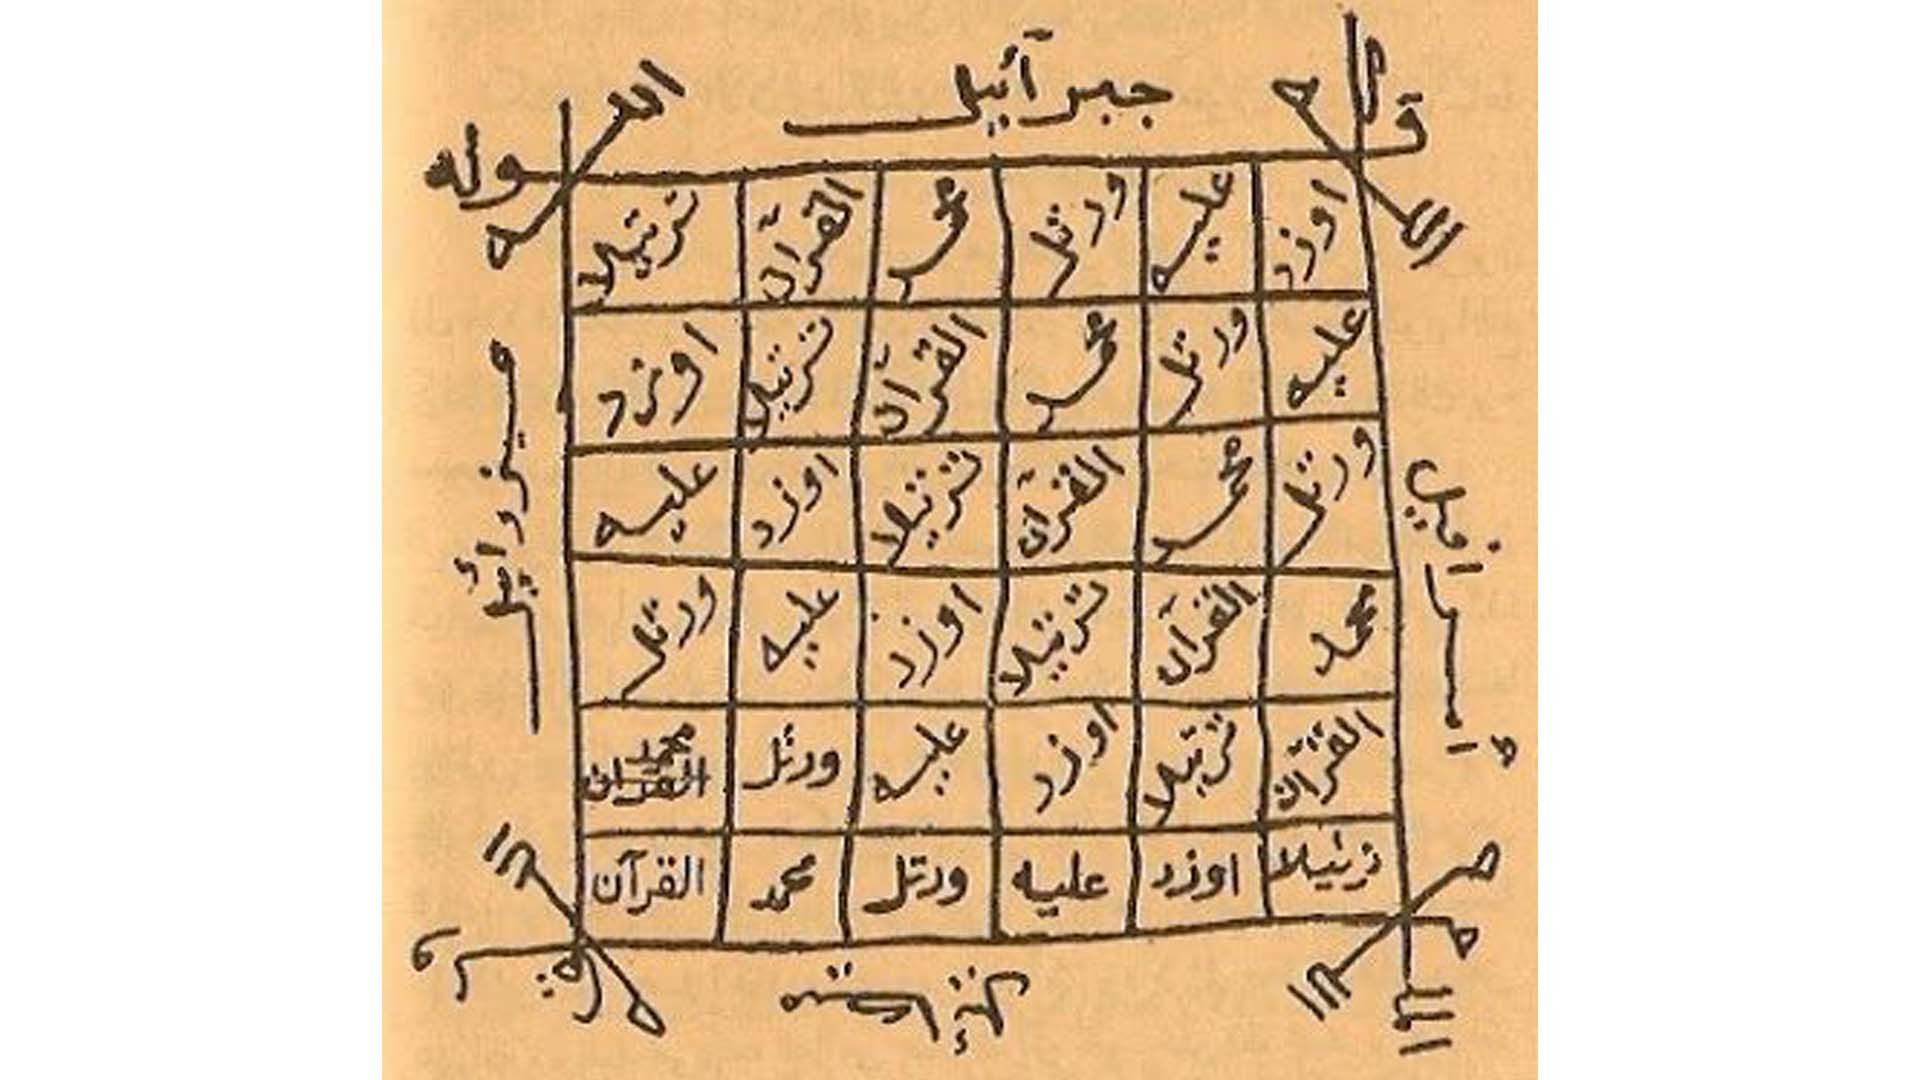 جبرآئيل
الله
اوزد عليه ورتل محمد القرآن ترتيلا
عليه ورتل محمد القرآن ترتيلا اوزد
ورتل محمد القرآن ترتيلا اوزد عليه
محمد القرآن ترتيلا اوزد عليه ورتل
القرآن ترتيلا اوزد عليه ورتل محمد القرآن
ترتيلا اوزد عليه ورتل محمد القرآن
اسرافيل